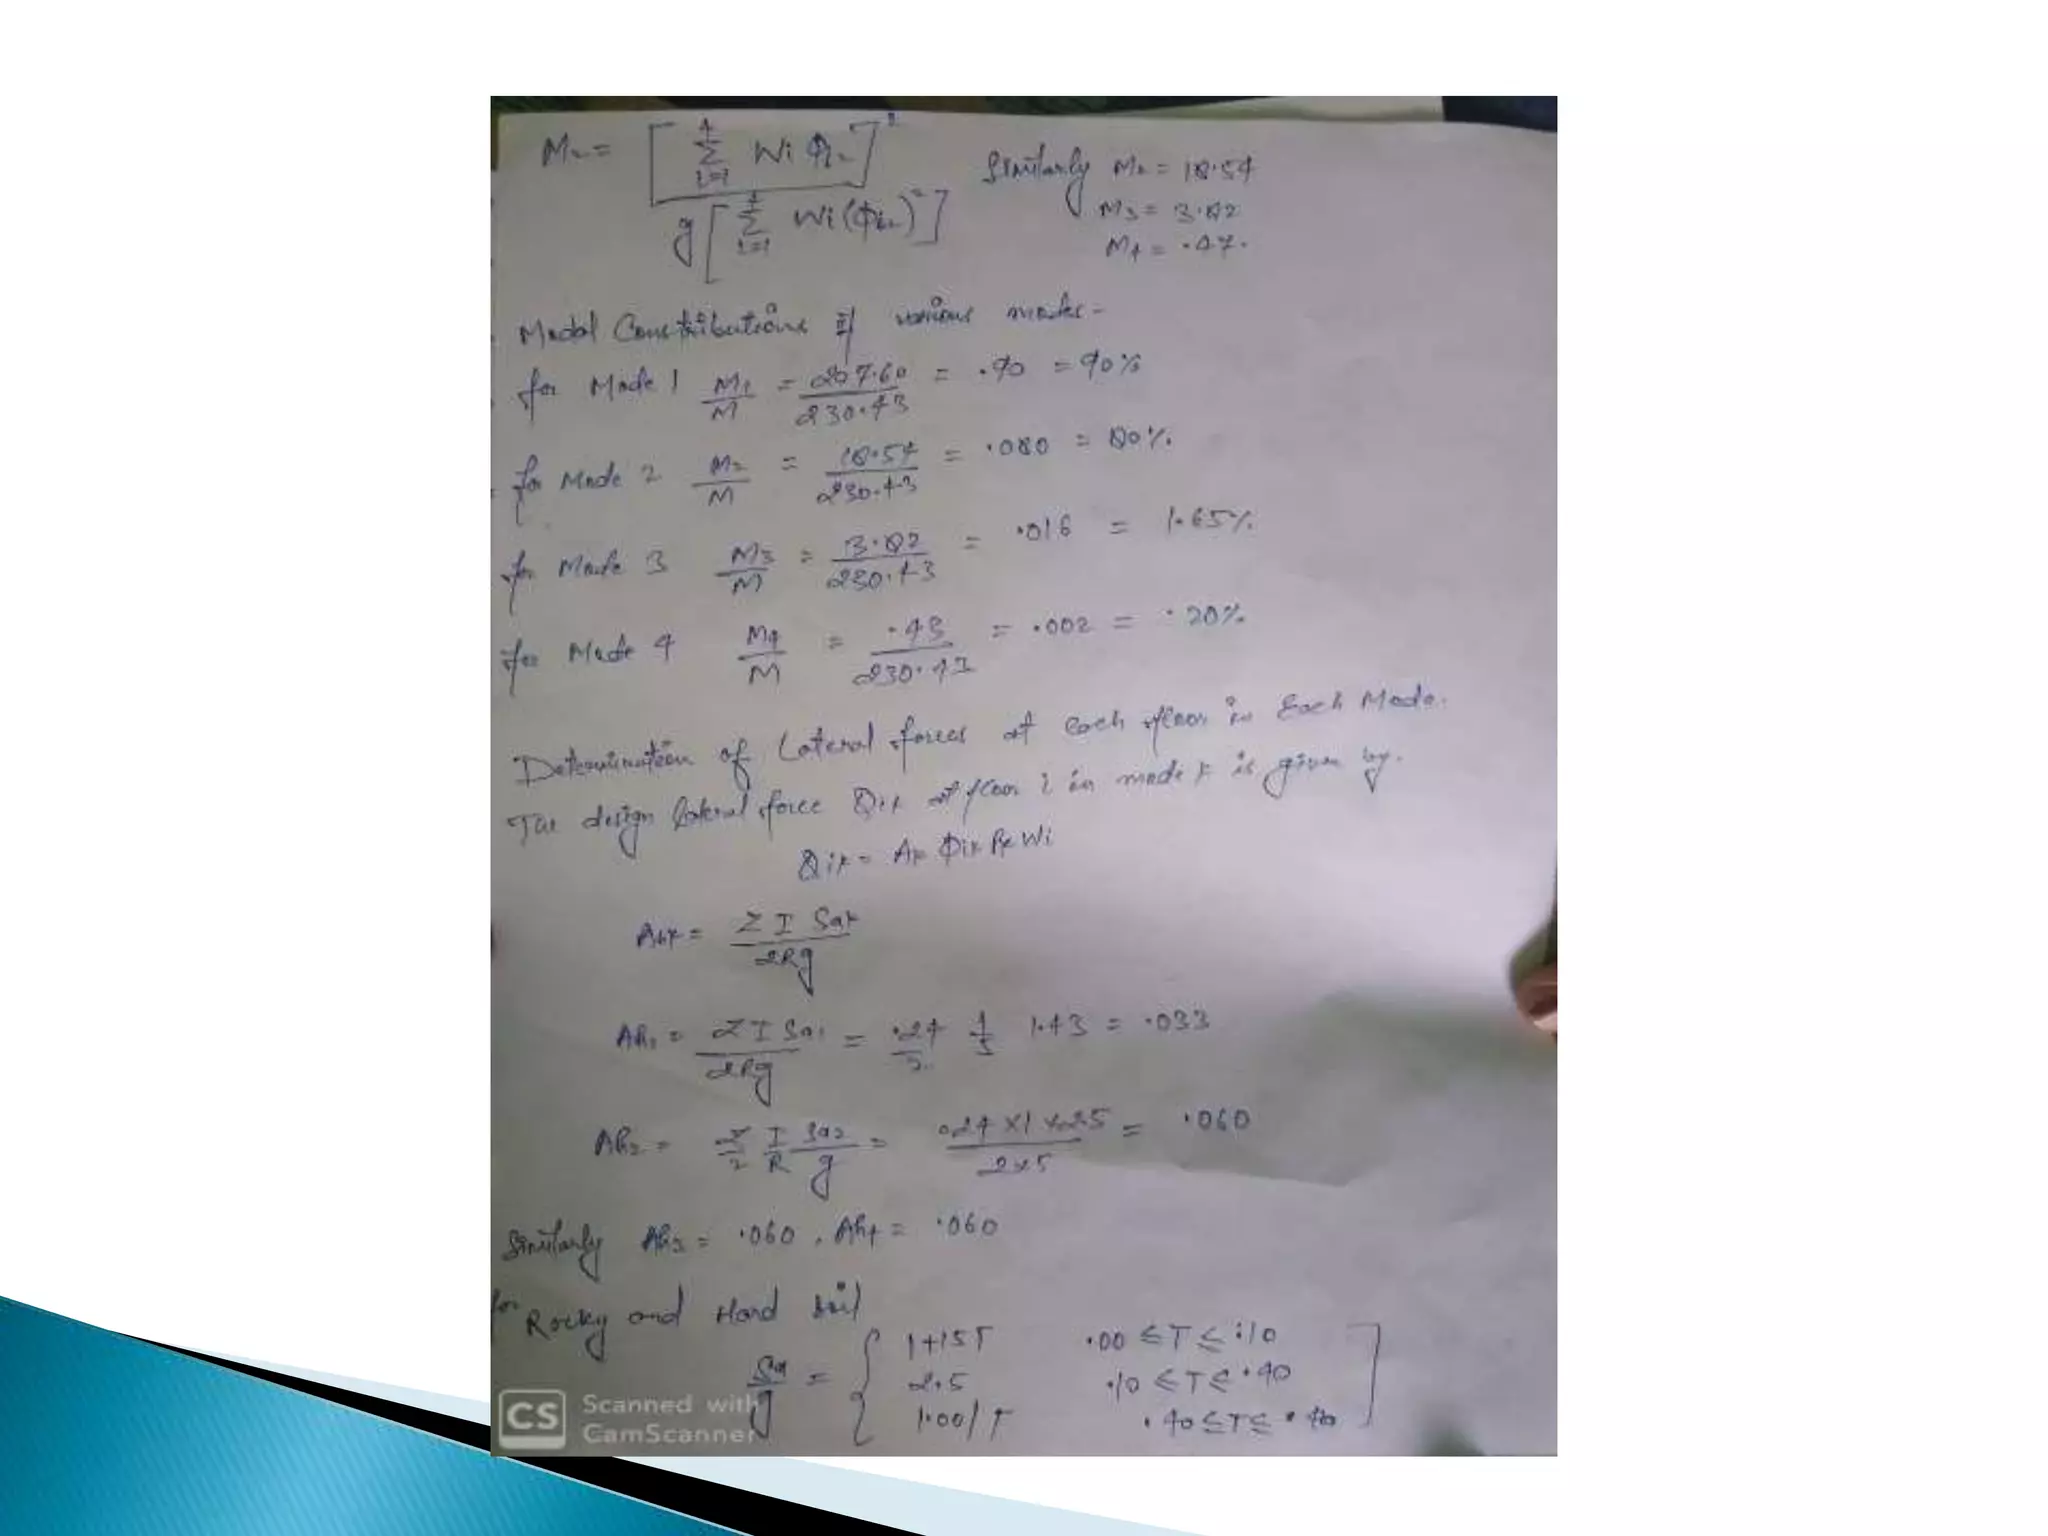 M₂ = [ 4 Σ i=1 Wi Φi2 ]² / g [ 4 Σ i=1 Wi (Φi2)² ]
Similarly M2 = 18.54
M3 = 3.82
M4 = .47.
Modal Contributions of various modes -
for Mode 1 M1/M = 207.60/230.43 = .90 = 90%
for Mode 2 M2/M = 18.54/230.43 = .080 = 80%.
for Mode 3 M3/M = 3.82/230.43 = .016 = 1.65%.
for Mode 4 M4/M = .43/230.43 = .002 = .20%
Determination of Lateral forces at each floor in Each Mode.
The design lateral force Qik at floor i in mode k is given by.
Qik = Ak Φik Pk Wi
Ahk = Z I Sak / 2Rg
Ah1 = Z I Sa1 / 2Rg = .24/2 1/5 1.43 = .033
Ah2 = Z/2 I/R Sa2/g = .24 x1 x2.5 / 2x5 = .060
Similarly Ah3 = .060, Ah4 = .060
for Rocky and Hard Soil
Sa/g = { 1+15T .00 ≤ T ≤ .10
2.5 .10 ≤ T ≤ .40
1.00/T .40 ≤ T ≤ ]
CS Scanned with
CamScanner